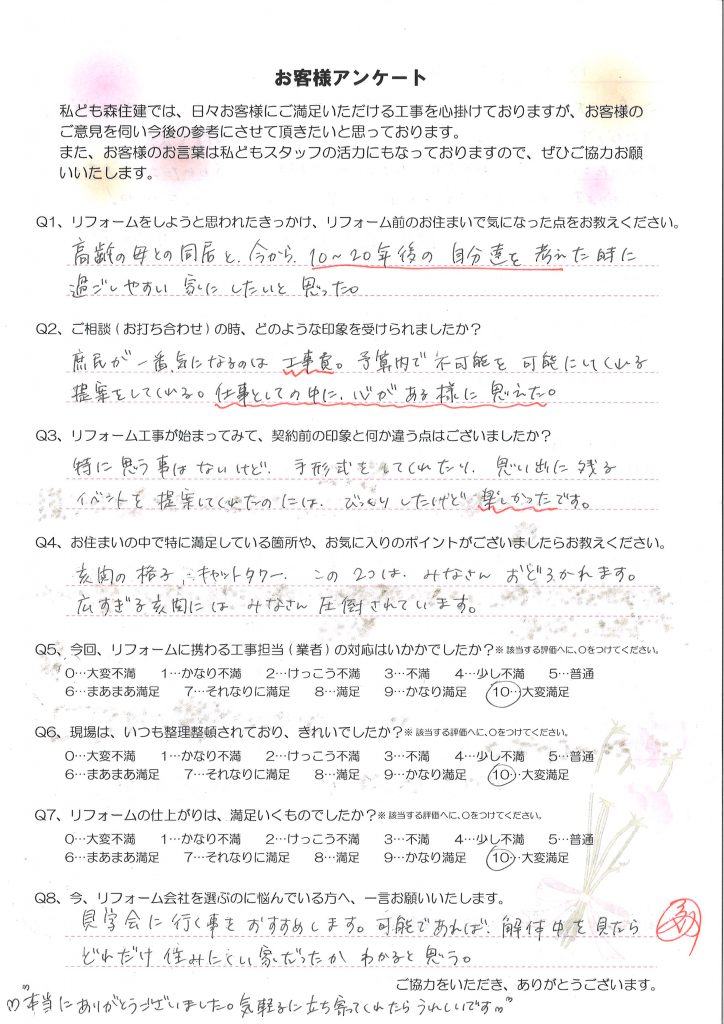 お客様アンケート
私ども森住建では、日々お客様にご満足いただける工事を心掛けておりますが、お客様の
ご意見を伺い今後の参考にさせて頂きたいと思っております。
また、お客様のお言葉は私どもスタッフの活力にもなっておりますので、ぜひご協力お願
いいたします。
Q1、リフォームをしようと思われたきっかけ、リフォーム前のお住まいで気になった点をお教えください。
高齢の母との同居と、今から、10〜20年後の自分達を考えた時に
過ごしやすい家にしたいと思った。
Q2、ご相談(お打ち合わせ)の時、どのような印象を受けられましたか?
庶民が一番気になるのは工事費。予算内で不可能を可能にしてくれる
提案をしてくれる。仕事としての中に、心がある様に思えた。
Q3、リフォーム工事が始まってみて、契約前の印象と何か違う点はございましたか?
特に思う事はないけど、手形式をしてくれたり、思い出に残る
イベントを提案してくれたのには、びっくりしたけど楽しかったです。
Q4、お住まいの中で特に満足している箇所や、お気に入りのポイントがございましたらお教えください。
玄関の格子、キャットタワー、この2つは、みなさんおどろかれます。
広すぎる玄関にはみなさん圧倒されています。
Q5、今回、リフォームに携わる工事担当(業者)の対応はいかかでしたか?※該当する評価へに、○をつけてください。
0…大変不満 1…かなり不満 2…けっこう不満 3…不満 4…少し不満 5…普通
6…まあまあ満足 7…それなりに満足 8…満足 9…かなり満足 10…大変満足
Q6、現場は、いつも整理整頓されており、きれいでしたか?※該当する評価へに、○をつけてください。
0…大変不満 1…かなり不満 2…けっこう不満 3…不満 4…少し不満 5…普通
6…まあまあ満足 7…それなりに満足 8…満足 9…かなり満足 10…大変満足
Q7、リフォームの仕上がりは、満足いくものでしたか?※該当する評価へに、○をつけてください。
0…大変不満 1…かなり不満 2…けっこう不満 3…不満 4…少し不満 5…普通
6…まあまあ満足 7…それなりに満足 8…満足 9…かなり満足 10…大変満足
Q8、今、リフォーム会社を選ぶのに悩んでいる方へ、一言お願いいたします。
見学会に行く事をおすすめします。可能であれば、解体中を見たら
どれだけ住みにくい家だったかわかると思う。
ご協力をいただき、ありがとうございます。
♡本当にありがとうございました。気軽に立ち寄ってくれたらうれしいです♡